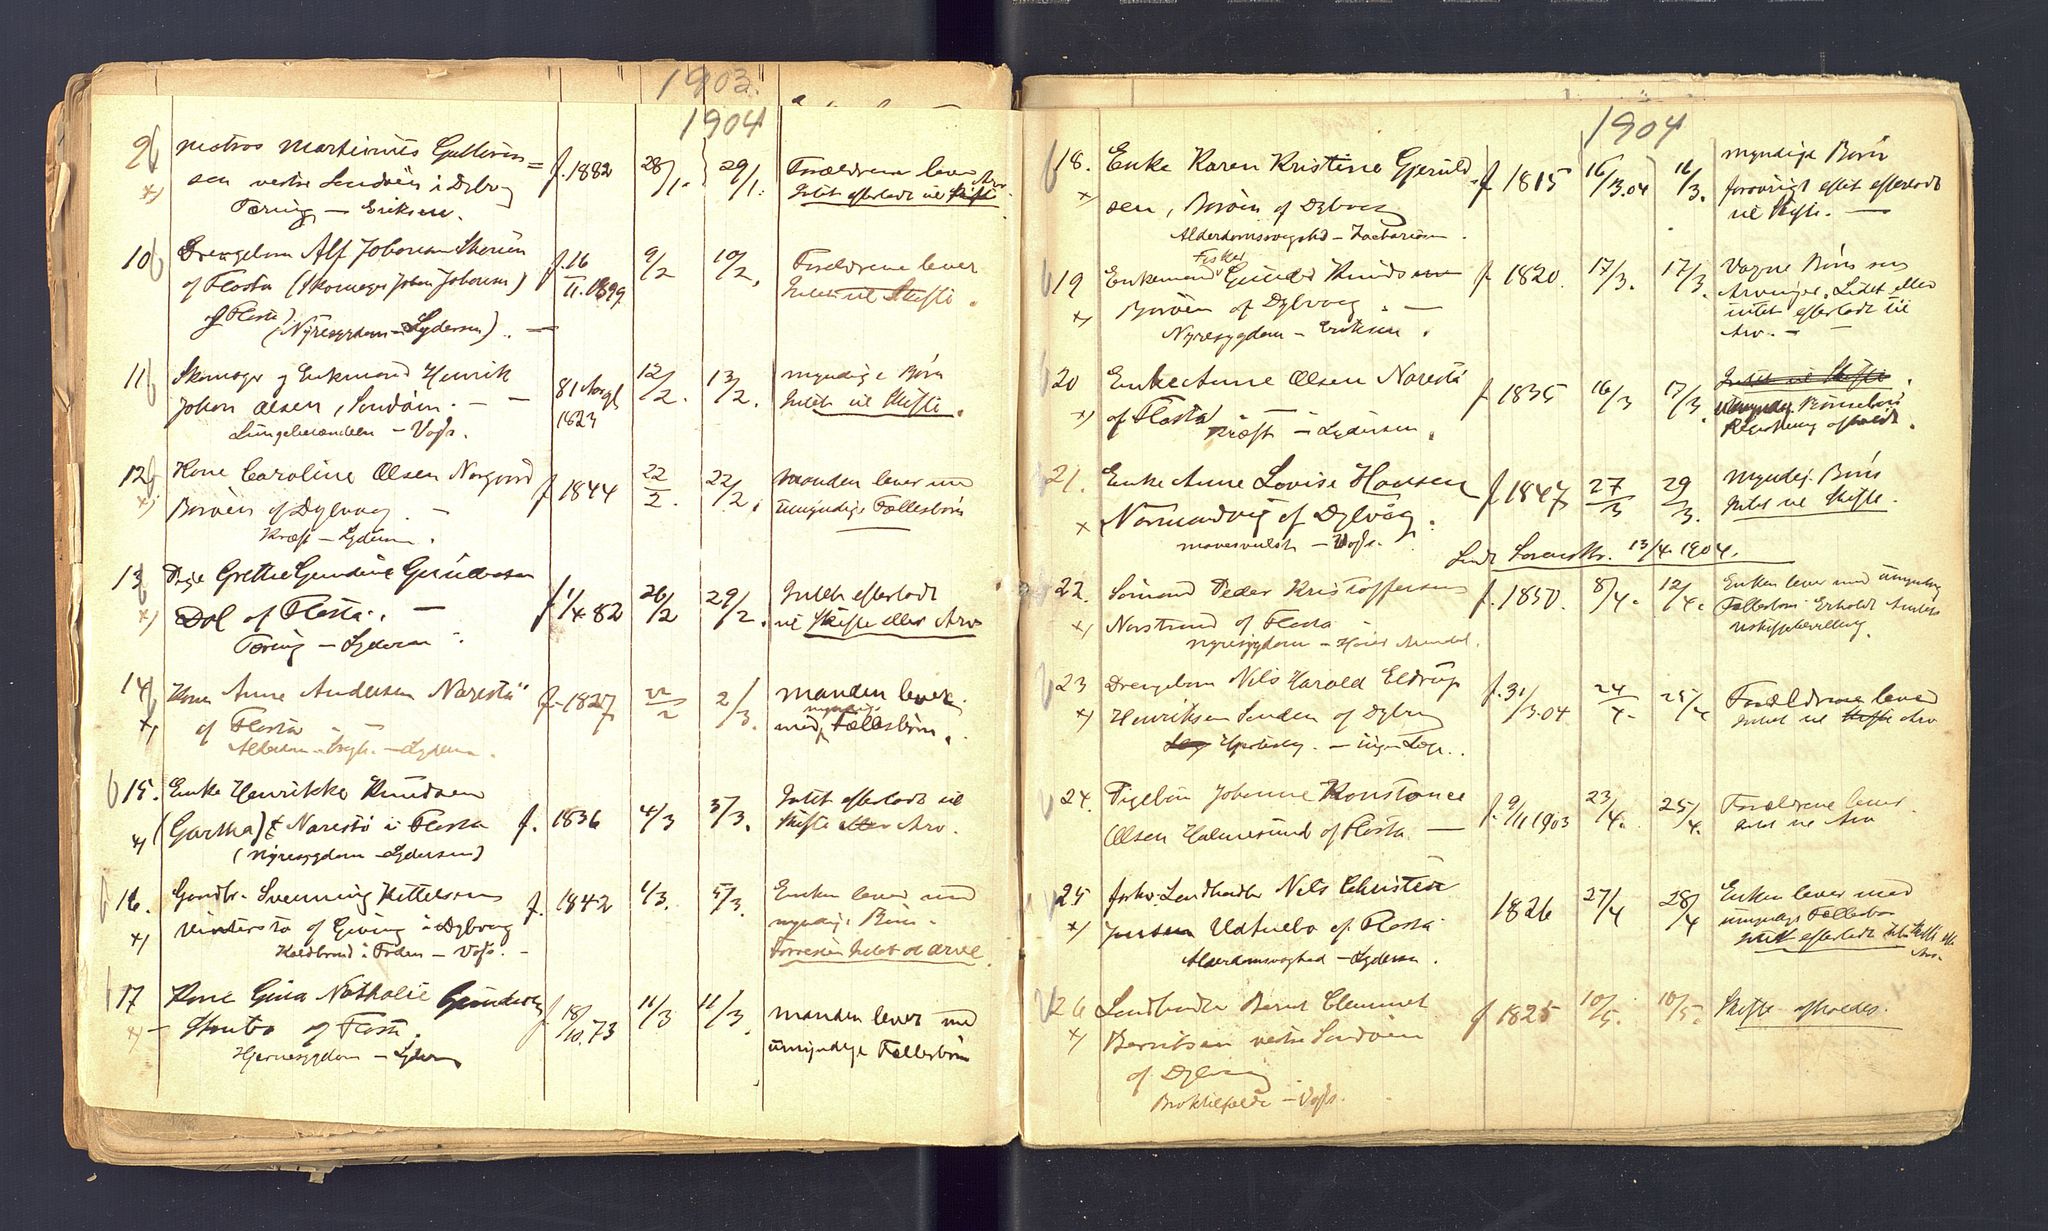 1903.
1904
9 Matros Martinius Gulbrin=
sen vestre Sandøen i Dybvog
Tæring — Eriksen.
f. 1882
28/1.
29/1.
Forældrene lever
Intet efterladt til Skifte
10 Drengebarn Alf Johansen
af Flosta (Skomager Johan Johansen)
af Flosta
(Nyresygdom — Lydersen). —
f. 16
11. 1899
9/2
10/2.
Forældrene lever
Intet til Skifte.
11 Skomager og Enkemand Henrik
Johan Olsen, Sandøen. —
Lungebetændelse — Vogt.
1823
12/2.
13/2.
myndige Børn
Intet til Skifte.
12 Kone Caroline Olsen
Borøen af Dybvog. —
Kræft — Lydersen.
f 1844
22/2.
22/2.
Manden lever med
umyndige Fællesbørn
13 Pige Grethe Gundine Gundersen
Dal af Flosta. —
Tæring — Lydersen.
f 1/4 82
26/2
29/2.
Intet efterladt
til Skifte eller Arv
14 Kone Anne Andersen Narestø
af Flosta
— Lydersen.
f. 1827
22/2
2/3.
Manden lever
med myndige Fællesbørn.
15. Enke Henrikke Knudsen
(Gartha) Narestø i Flosta
(Nyresygdom — Lydersen)
f. 1836
4/3
5/3.
Intet efterladt til
Skifte eller Arv.
16. Gaardbr. Svenning Kittelsen
Vintersto af Giving i Dybvog
Koldbrand i Foden — Vogt. -
f. 1842
1/3.
5/3.
Enken lever med
myndige Børn.
Forresten Intet at arve.
17 Kone Gina Nathalie Gundersen
af Flosta.
Hjernesygdom — Lydersen
f. 18/10. 73
11/3
11/3.
Manden lever med
umyndige Fællesbørn
1904
18. Enke Karen Kristine Gjeruld-
sen, Borøen af Dybvog
Alderdomssvaghed — Zachariasen.
f 1815
16/3.04
16/3.
myndige Børn
forøvrigt intet efterladt
til Skifte. —
19 Enkemand Fisker Gunder Knudsen
Borøen af Dybvog. —
Nyresygdom — Eriksen.
f. 1820.
17/3.
17/3.
Voxne Børn som
Arvinger. Lidet eller
intet efterladt til
Arv. —
20 Enke Anne Olsen Narestø
af Flosta
Kræft — Lydersen.
f 1835
16/3
17/3.
Intet til Skifte.
umyndig
Registrering afholdt.
21. Enke Anne Lovise Hansen
Normandvig af Dybvåg.
Mavesvulst — Vogt.
f 1847
27/3
29/3.
Myndige Børn
Intet til Skifte.
Sendt Sorenskr. 13/4 1904.
22. Sømand Peder Kristoffersen
Narstrand af Flosta
Nyresygdom — Høier Arendal.
f. 1850.
8/4.
12/4.
Enken lever med umyndige
Fællesbørn. Erholdt
uskiftebevilling.
23 Drengebarn Nils Harald Eldrup
Henriksen Sanden af Dybvog
— ingen Læge.
f. 31/3.04
24/4.
25/4
Forældrene lever
Intet til Skifte Arv
24. Pigebarn Johanne Konstance
Olsen Holmesund af Flosta —
f. 9/11 1903
23/4.
25/4.
Forældrene lever.
Intet til Arv
25 forhv. Landhandler Nils Christian
Jensen Udtuebo af Flosta
Alderdomssvaghed — Lydersen.
1826
27/4
28/4
Enken lever med
umyndige Fællesbørn
Intet efterladt til Skifte eller
Arv.
26 Landhandler Bernt Clemmet
Berntsen vestre Sandøen
af Dybvog
Broktilfælde — Vogt.
f 1825
10/5.
10/5.
Skifte afholdes.